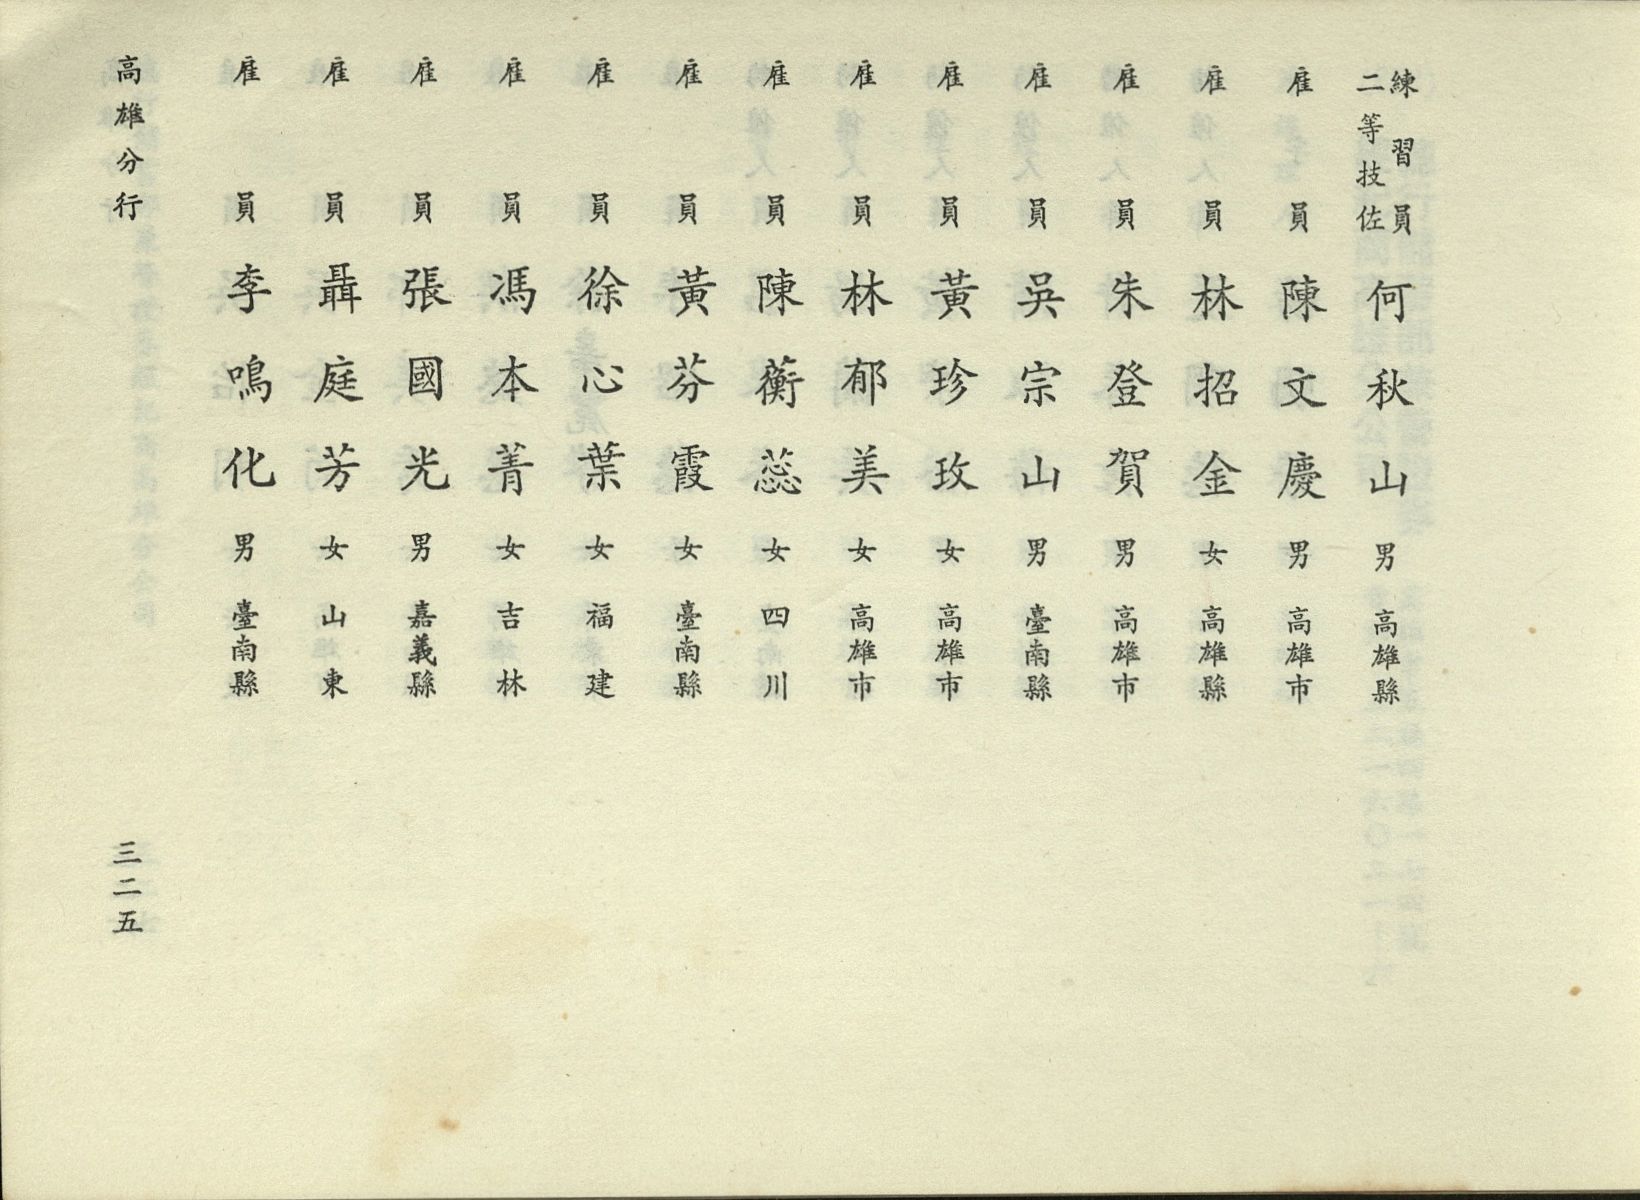 練習員
二等技佐 何秋山 男 高雄縣
雇員 陳文慶 男 高雄市
雇員 林招金 女 高雄縣
雇員 朱登賀 男 高雄市
雇員 吳宗山 男 臺南縣
雇員 黃珍玫 女 高雄市
雇員 林郁美 女 高雄市
雇員 陳蘅蕊 女 四川
雇員 黃芬霞 女 臺南縣
雇員 徐心葉 女 福建
雇員 馮本菁 女 吉林
雇員 張國光 男 嘉義縣
雇員 聶庭芳 女 山東
雇員 李鳴化 男 臺南縣
高雄分行 三二五